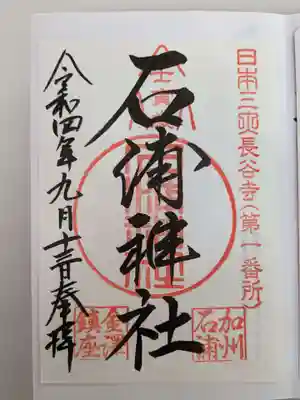 日本三大長谷寺(第一番所)
加州
石浦
石浦神社
金澤
鎮座
令和四年九月十三日奉拝